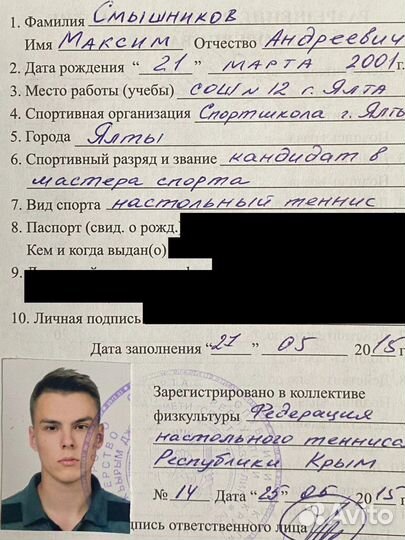 1. Фамилия Смышников
Имя Максим Отчество Андреевич
2. Дата рождения “ 21 ” марта 2001 г.
3. Место работы (учебы) СОШ № 12 г. Ялта
4. Спортивная организация Спортшкола г. Ялты
5. Города Ялты
6. Спортивный разряд и звание кандидат в
мастера спорта
7. Вид спорта настольный теннис
8. Паспорт (свид. о рожд.
Кем и когда выдан(о)
9.
10. Личная подпись
Дата заполнения “27” 05 2015 г
Зарегистрировано в коллективе
физкультуры Федерация
настольного тенниса
Республики Крым
№ 14 Дата “25” 05 2015
дпись ответственного лица
Avito